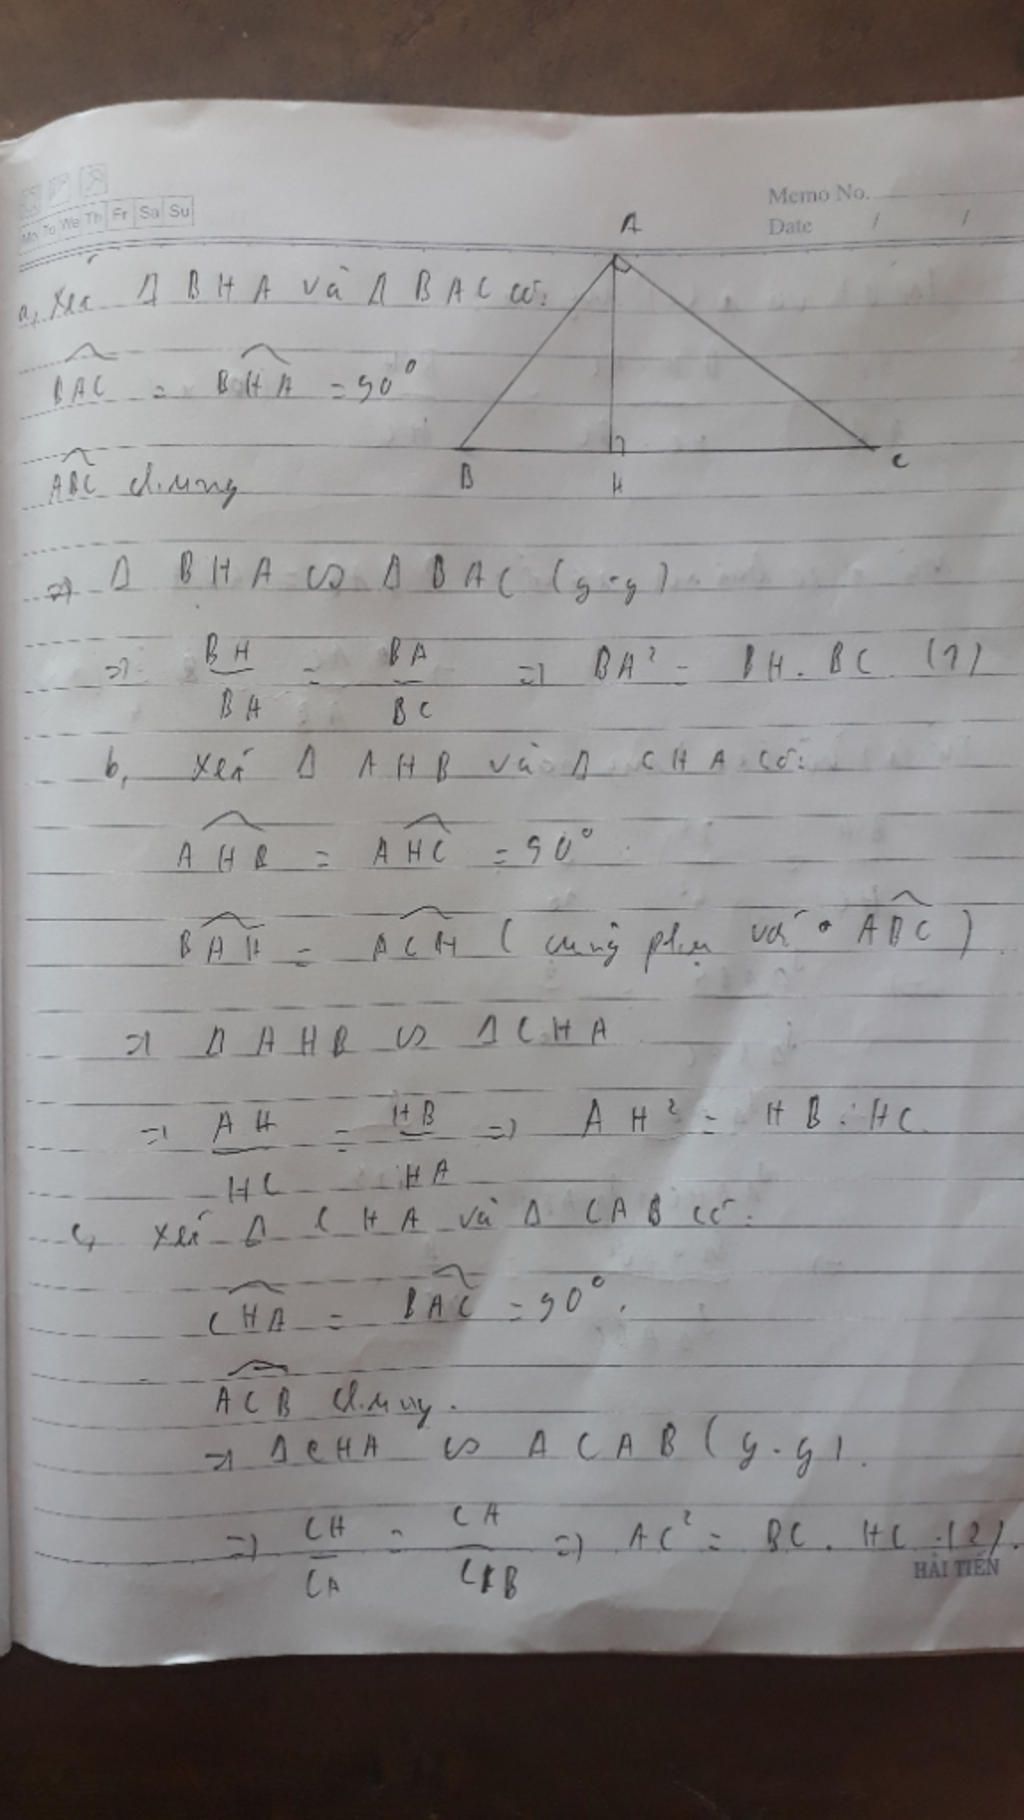 Mo Tu We Th Fr Sa Su
Memo No.
Date / /
A
B
H
C
a, Xét Δ BHA và Δ BAC có:
BAC = BHA = 90°
ABC chung
=> Δ BHA ∽ Δ BAC (g.g)
=> BH/BA = BA/BC => BA² = BH.BC (1)
b, Xét Δ AHB và Δ CHA có:
AHB = AHC = 90°
BAH = ACH (cùng phụ với ABC)
=> Δ AHB ∽ Δ CHA
=> AH/HC = HB/HA => AH² = HB.HC
c, Xét Δ CHA và Δ CAB có:
CHA = BAC = 90°.
ACB chung.
=> Δ CHA ∽ Δ CAB (g.g).
=> CH/CA = CA/CB => AC² = BC.HC (2).
HẢI TIẾN